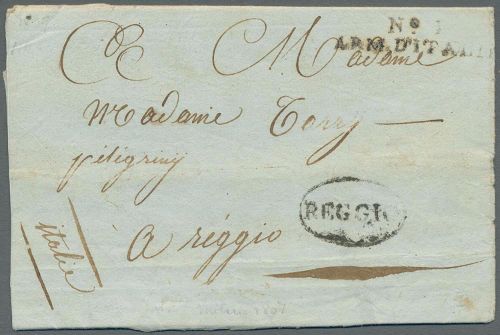 Nº 1
ARM. D'ITALIE
A Madame
Madame Torry
péligriny
REGGIO
A réggio
italie